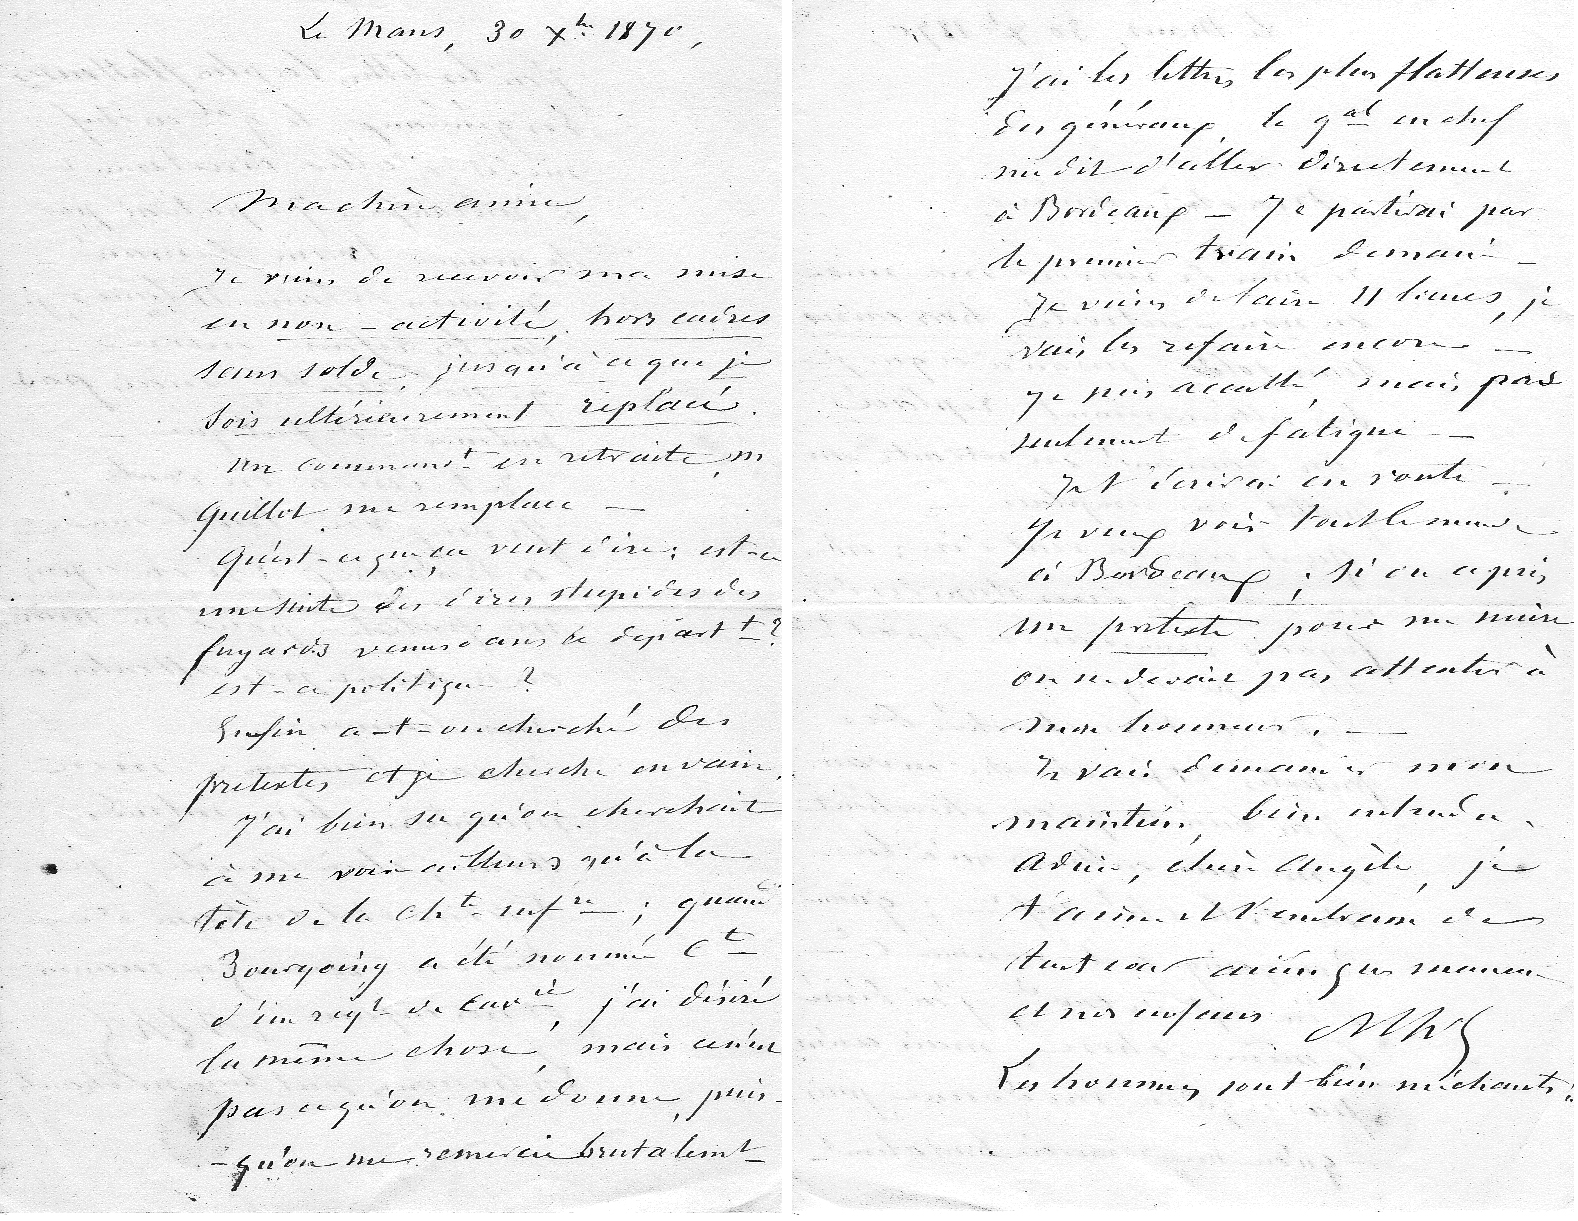 Le Mans, 30 Xbre 1870,
Ma chère amie,
Je viens de recevoir ma mise
en non-activité, hors cadres
sans solde, jusqu'à ce que je
sois ultérieurement replacé.
Un command.t en retraite, M
Quillot me remplace —
Qu'est-ce que ça veut dire; est-ce
une suite des dires stupides des
fuyards venus dans le départ t ?
est-ce politique ?
Enfin a-t-on cherché des
pretextes et je cherche en vain.
J'ai bien su qu'on cherchait
à me voir ailleurs qu'à la
tête de la ; quand
Bourgoing a été nommé Ct
d'un régt de cavie, j'ai désiré
la même chose, mais
pas ce qu'on me donne, puis-
-qu'on me remercie brutalemt
J'ai les lettres les plus flatteuses
des généraux, le gal en chef
me dit d'aller directement
à Bordeaux — Je partirai par
le premier train demain —
Je viens de faire 11 lieues, je
vais les refaire encore —
Je suis accablé, mais pas
seulement de fatigue —
Je t'écrirai en route —
Je veux voir tout le monde
à Bordeaux ; si on a pris
un pretexte pour me nuire
on ne devait pas attenter à
mon honneur. —
Je vais demander mon
maintien, bien entendu.
Adieu, chère Angèle, je
t'aime et t'embrasse de
tout cœur ainsi que maman
et nos enfants
Les hommes sont bien méchants !!